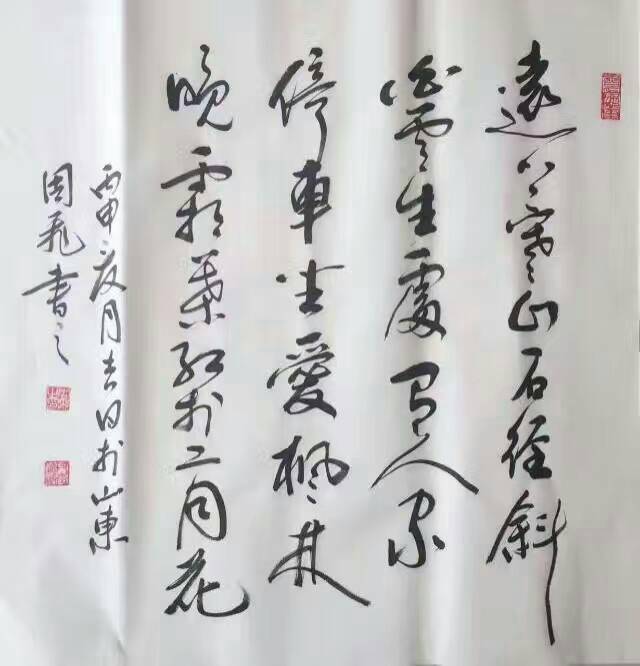 遠上寒山石径斜
白雲生處有人家
停車坐愛楓林
晚霜葉紅於二月花
丙申夏月吉日於山東
周飛書之